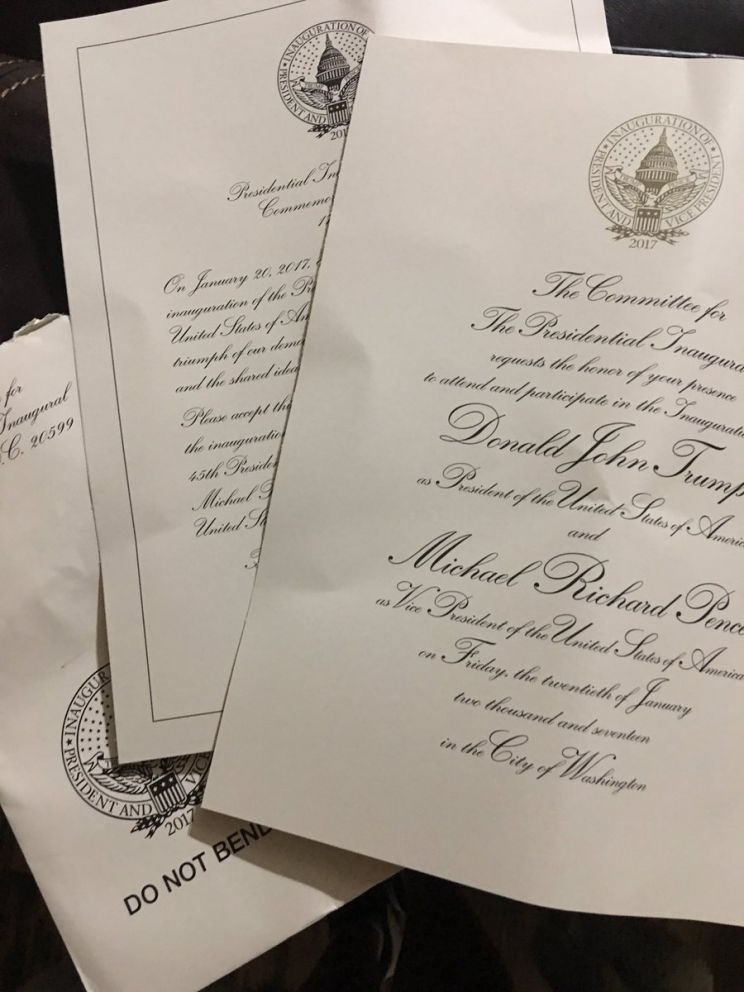 INAUGURATION OF
PRESIDENT AND
201
Presidential In
Commemo
1
On January 20, 2017,
inauguration of the Pr
United States of Am
triumph of our demo
and the shared idea
Please accept thi
the inauguration
45th Presiden
Michael
United St
INAUGURATION OF
PRESIDENT AND VICE PRESIDENT
2017
The Committee for
The Presidential Inaugura
requests the honor of your presence
to attend and participate in the Inauguratio
Donald John Trump
as President of the United States of America
and
Michael Richard Pence
as Vice President of the United States of America
on Friday, the twentieth of January
two thousand and seventeen
in the City of Washington
for
Inaugural
.C. 20599
INAUGUR
PRESIDENT AND VICE
2017
DO NOT BEND